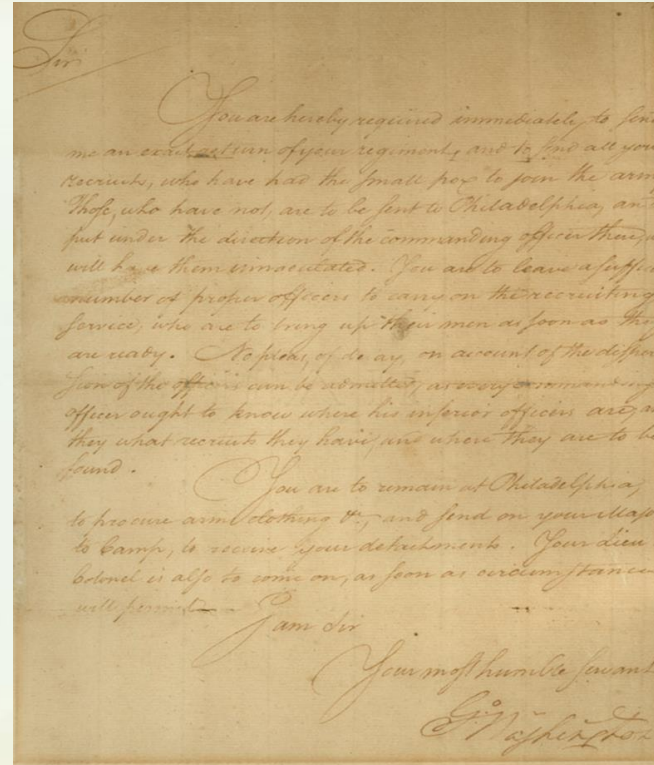 Sir
You are hereby required immediately to send
me an exact return of your regiment, and to send all your
recruits, who have had the small pox to join the army
Those, who have not, are to be sent to Philadelphia, and
put under the direction of the commanding officer there,
will have them innoculated. You are to leave a suffi
number of proper officers to carry on the recruiting
service, who are to bring up their men as soon as they
are ready. No pleas, of de ay, on account of the disper
sion of the officers can be admitted, as every commanding
officer ought to know where his inferior officers are, a
they what recruits they have, and where they are to be
found.
You are to remain at Philadelphia,
to procure arms clothing &c, and send on your Majo
to Camp, to receive your detachments. Your Lieu
Colonel is also to come on, as soon as circumstance
will permit
I am Sir
Your most humble servant
Go Washington